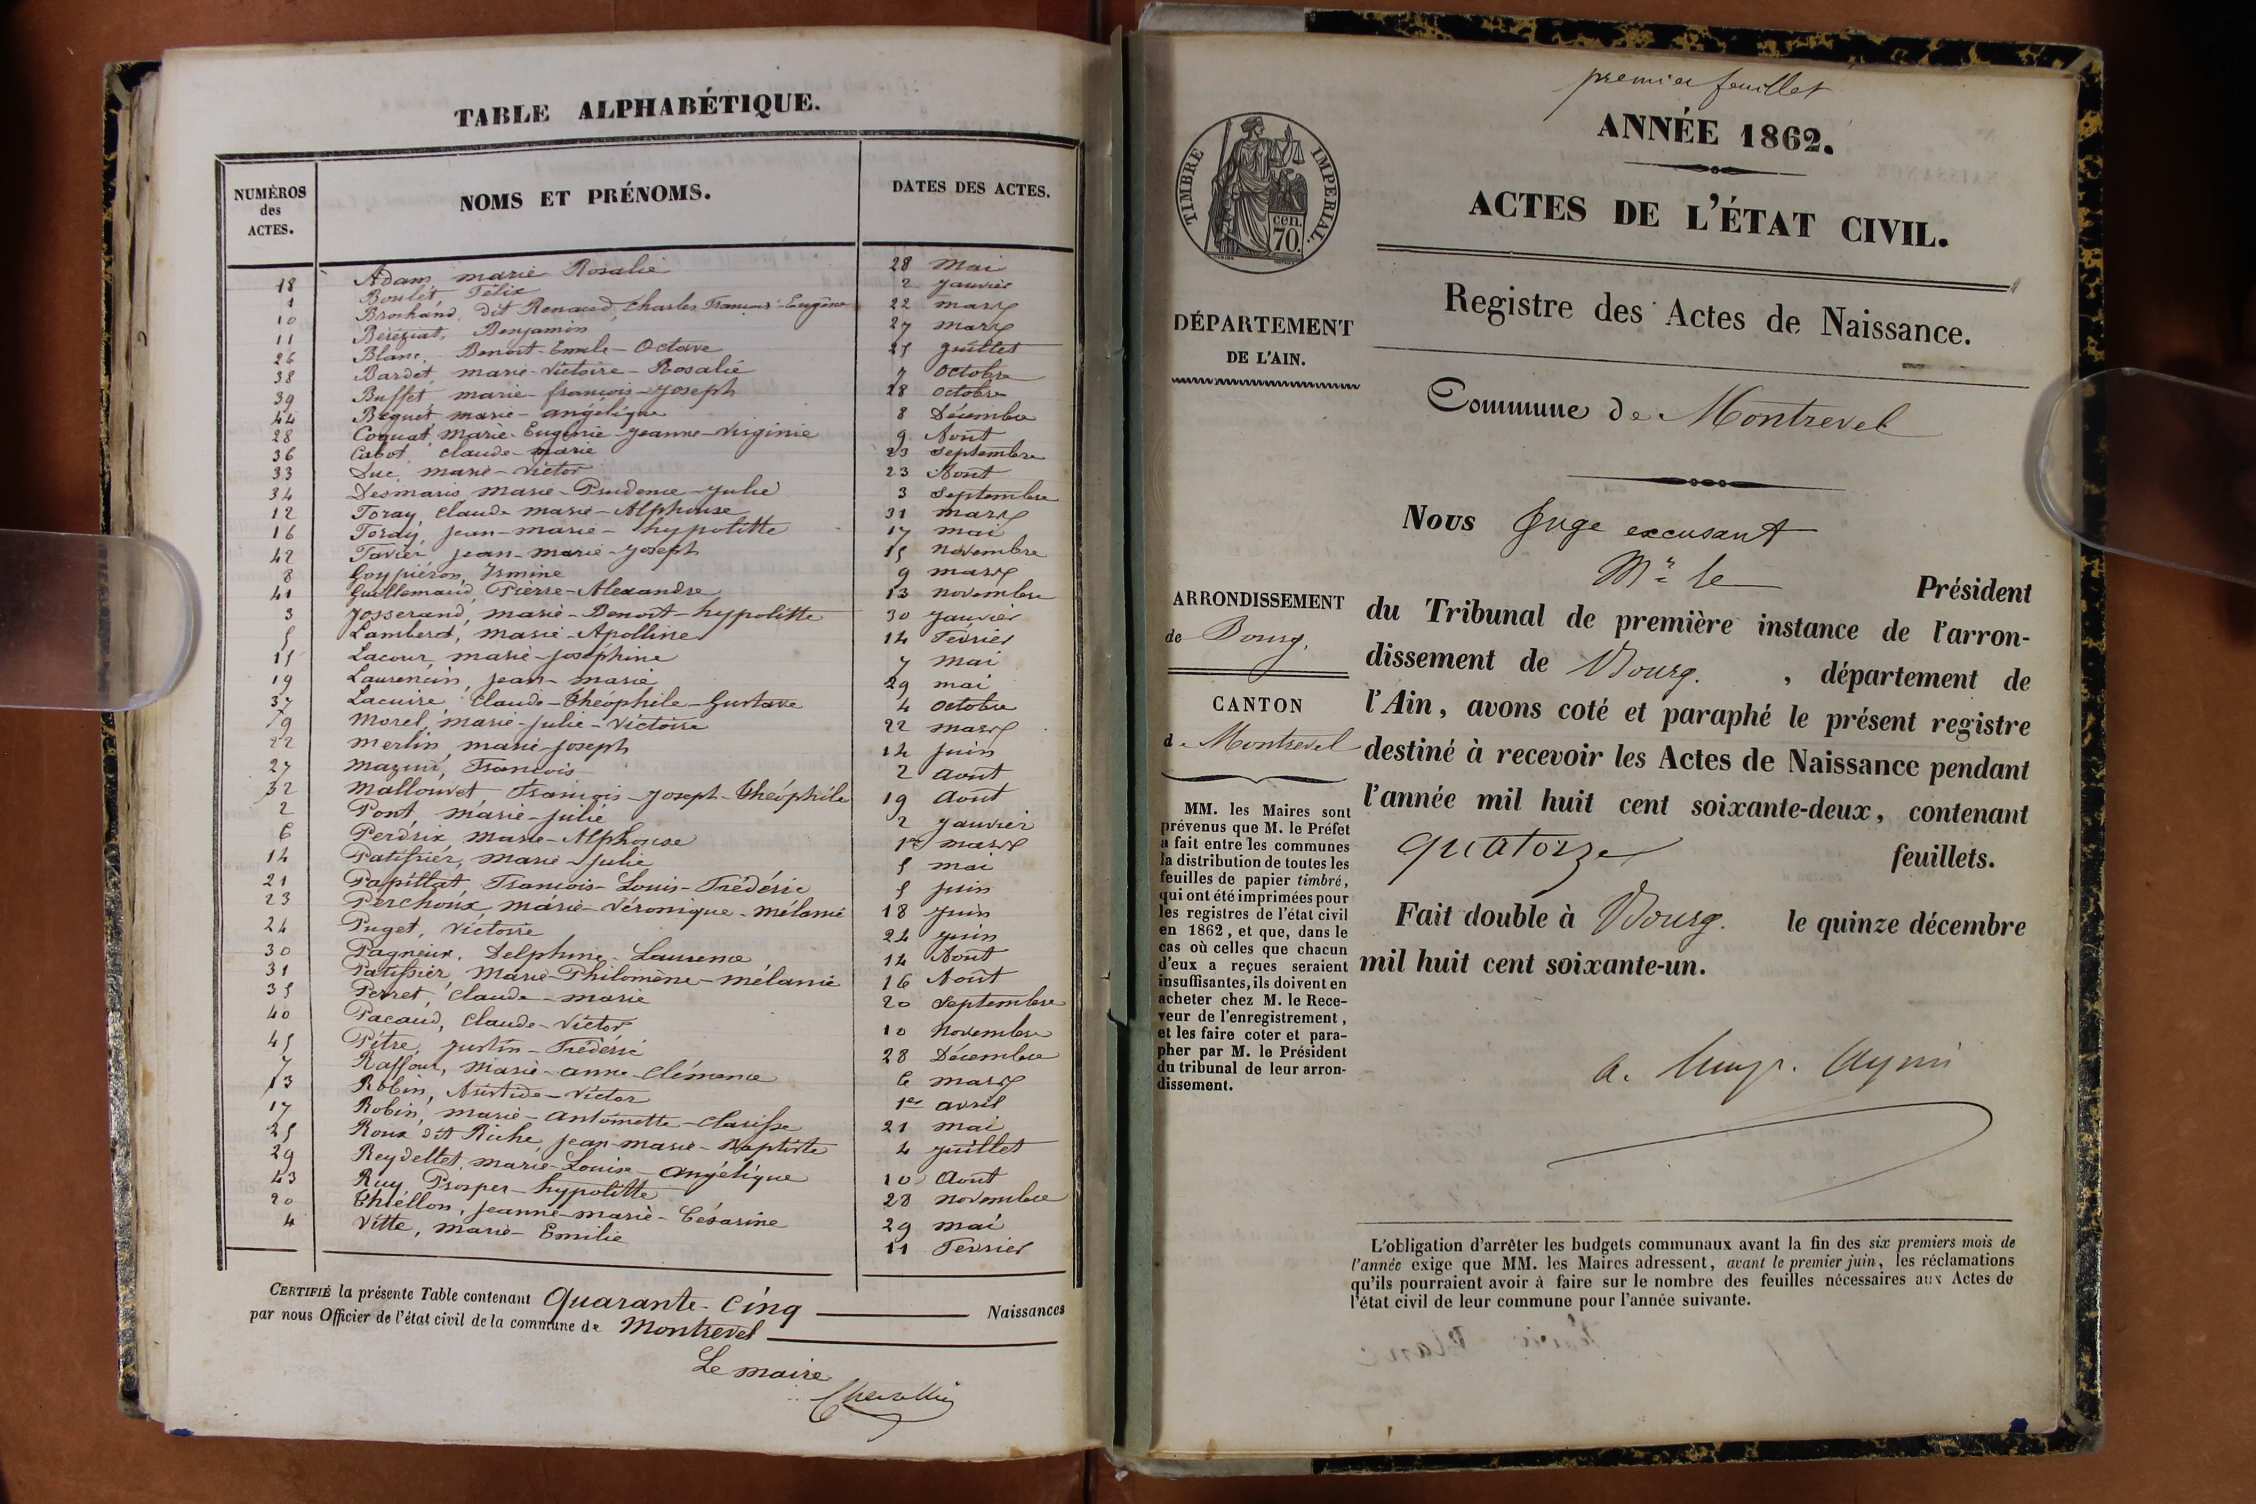 TABLE ALPHABÉTIQUE.
NUMÉROS des ACTES. NOMS ET PRÉNOMS. DATES DES ACTES.
18 Adam, marie Rosalie 28 Mai
1 Boulet Félix 2 Janvier
10 Brochand, dit Renaud, Charles François Eugène 22 mars
11 Béréziat, Benjamin 27 mars
26 Blanc, Benoit-Emile-Octave 25 Juillet
38 Bardet, marie-Victoire-Rosalie 7 Octobre
39 Buffet, marie-françois-Joseph 28 Octobre
44 Béguet marie-angélique 8 Décembre
28 Coquat, Marie-Eugénie-Jeanne-Virginie 9 Août
36 Cabot, Claude-marie 23 Septembre
33 Duc, marie-Victor 23 Août
34 Desmaris, Marie-Prudence-Julie 3 Septembre
12 Foray, Claude-marie-Alphonse 31 mars
16 Foray, Jean-marie-hypolitte 17 mai
42 Favier, Jean-marie-Joseph 15 novembre
8 Goypiéron, Ismine 9 mars
41 Guillemaud, Pierre-Alexandre 13 novembre
3 Josserand, marie-Benoit-hypolitte 30 Janvier
5 Lamberet, marie-Apolline 14 Février
15 Lacour, marie-Joséphine 7 mai
19 Laurencin, Jean-marie 29 mai
37 Lacuire, Claude-Théophile-Gustave 4 Octobre
9 Morel, marie-Julie-Victoire 22 mars
22 Merlin, marie-Joseph 14 Juin
27 Mazuir, François 2 Août
32 Mallouvet François-Joseph-Théophile 19 Août
2 Pont, marie-Julie 2 Janvier
6 Perdrix, Marie-Alphonse 1er mars
14 Patissier, Marie-Julie 5 mai
21 Papillat, François-Louis-Frédéric 5 Juin
23 Perchoux, marie-Véronique-mélanie 18 Juin
24 Puget, Victoire 24 Juin
30 Pagneux, Delphine-Laurence 14 Août
31 Patissier, Marie-Philomène-mélanie 16 Août
35 Perret, Claude-marie 20 Septembre
40 Pacaud, Claude-Victor 10 Novembre
45 Pitre, Justin-Frédéric 28 Décembre
7 Raffour, Marie-anne-Clémence 6 mars
13 Robin, Aristide-Victor 1er avril
17 Robin, marie-Antoinette-Clarisse 21 mai
25 Roux dit Riche, Jean-marie-Baptiste 4 Juillet
29 Reydellet, marie-Louise-Angélique 10 Août
43 Ruy, Prosper-hypolitte 28 novembre
20 Thiéllon, Jeanne-marie-Césarine 29 mai
4 Vitte, marie-Emilie 11 Février
CERTIFIÉ la présente Table contenant Quarante-Cinq Naissances
par nous Officier de l'état civil de la commune de Montrevel
Le maire
premier feuillet
ANNÉE 1862.
TIMBRE IMPÉRIAL.
cen. 70.
ACTES DE L'ÉTAT CIVIL.
Registre des Actes de Naissance.
DÉPARTEMENT
DE L'AIN.
Commune de Montrevel
Nous Juge excusant
Mr le Président
ARRONDISSEMENT
de Bourg.
CANTON
de Montrevel
du Tribunal de première instance de l'arron-
dissement de Bourg. , département de
l'Ain, avons coté et paraphé le présent registre
destiné à recevoir les Actes de Naissance pendant
l'année mil huit cent soixante-deux, contenant
quatorze feuillets.
Fait double à Bourg. le quinze décembre
mil huit cent soixante-un.
MM. les Maires sont
prévenus que M. le Préfet
a fait entre les communes
la distribution de toutes les
feuilles de papier timbré,
qui ont été imprimées pour
les registres de l'état civil
en 1862, et que, dans le
cas où celles que chacun
d'eux a reçues seraient
insuffisantes, ils doivent en
acheter chez M. le Rece-
veur de l'enregistrement,
et les faire coter et para-
pher par M. le Président
du tribunal de leur arron-
dissement.
L'obligation d'arrêter les budgets communaux avant la fin des six premiers mois de
l'année exige que MM. les Maires adressent, avant le premier juin, les réclamations
qu'ils pourraient avoir à faire sur le nombre des feuilles nécessaires aux Actes de
l'état civil de leur commune pour l'année suivante.